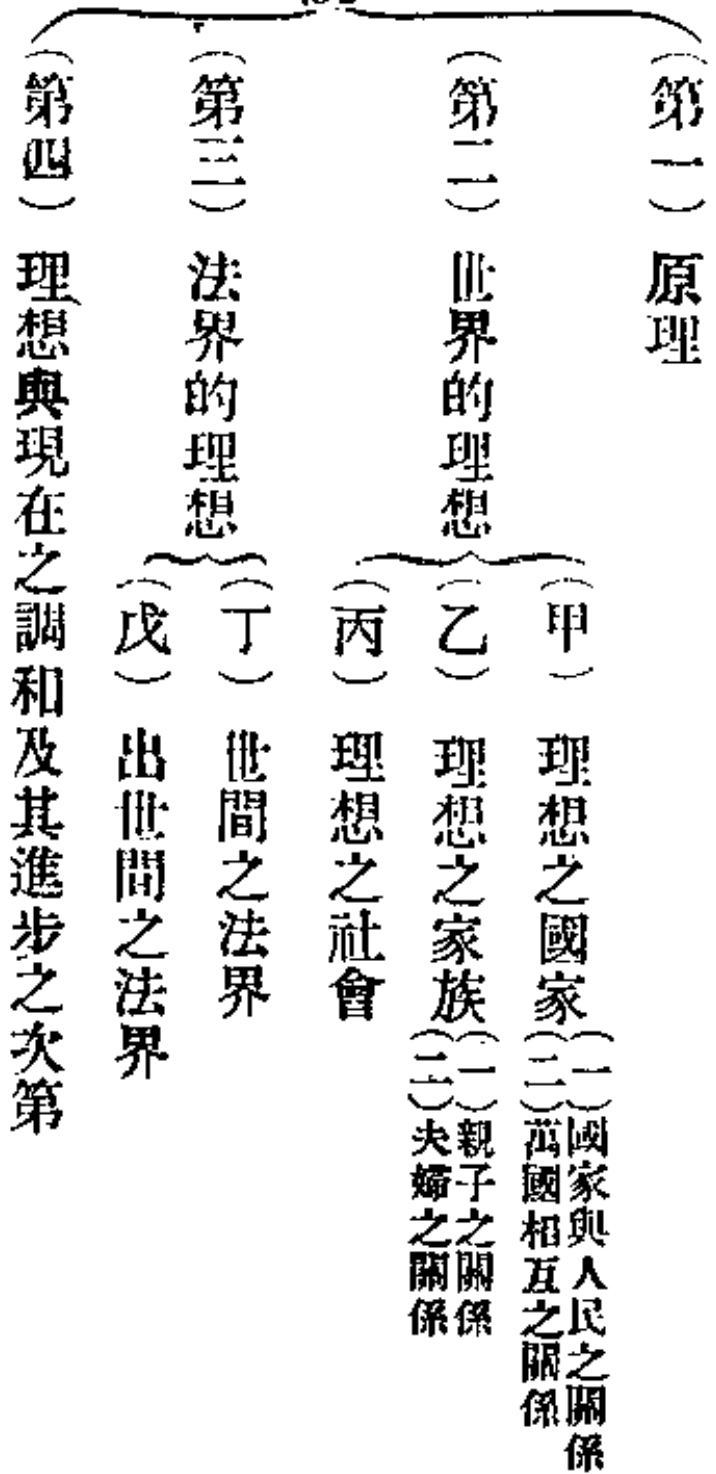 (第一)原理
(第二)世界的理想
(甲)理想之國家
(一)國家與人民之關係
(二)萬國相互之關係
(乙)理想之家族
(一)親子之關係
(二)夫婦之關係
(丙)理想之社會
(第三)法界的理想
(丁)世間之法界
(戊)出世間之法界
(第四)理想與現在之調和及其進步之次第